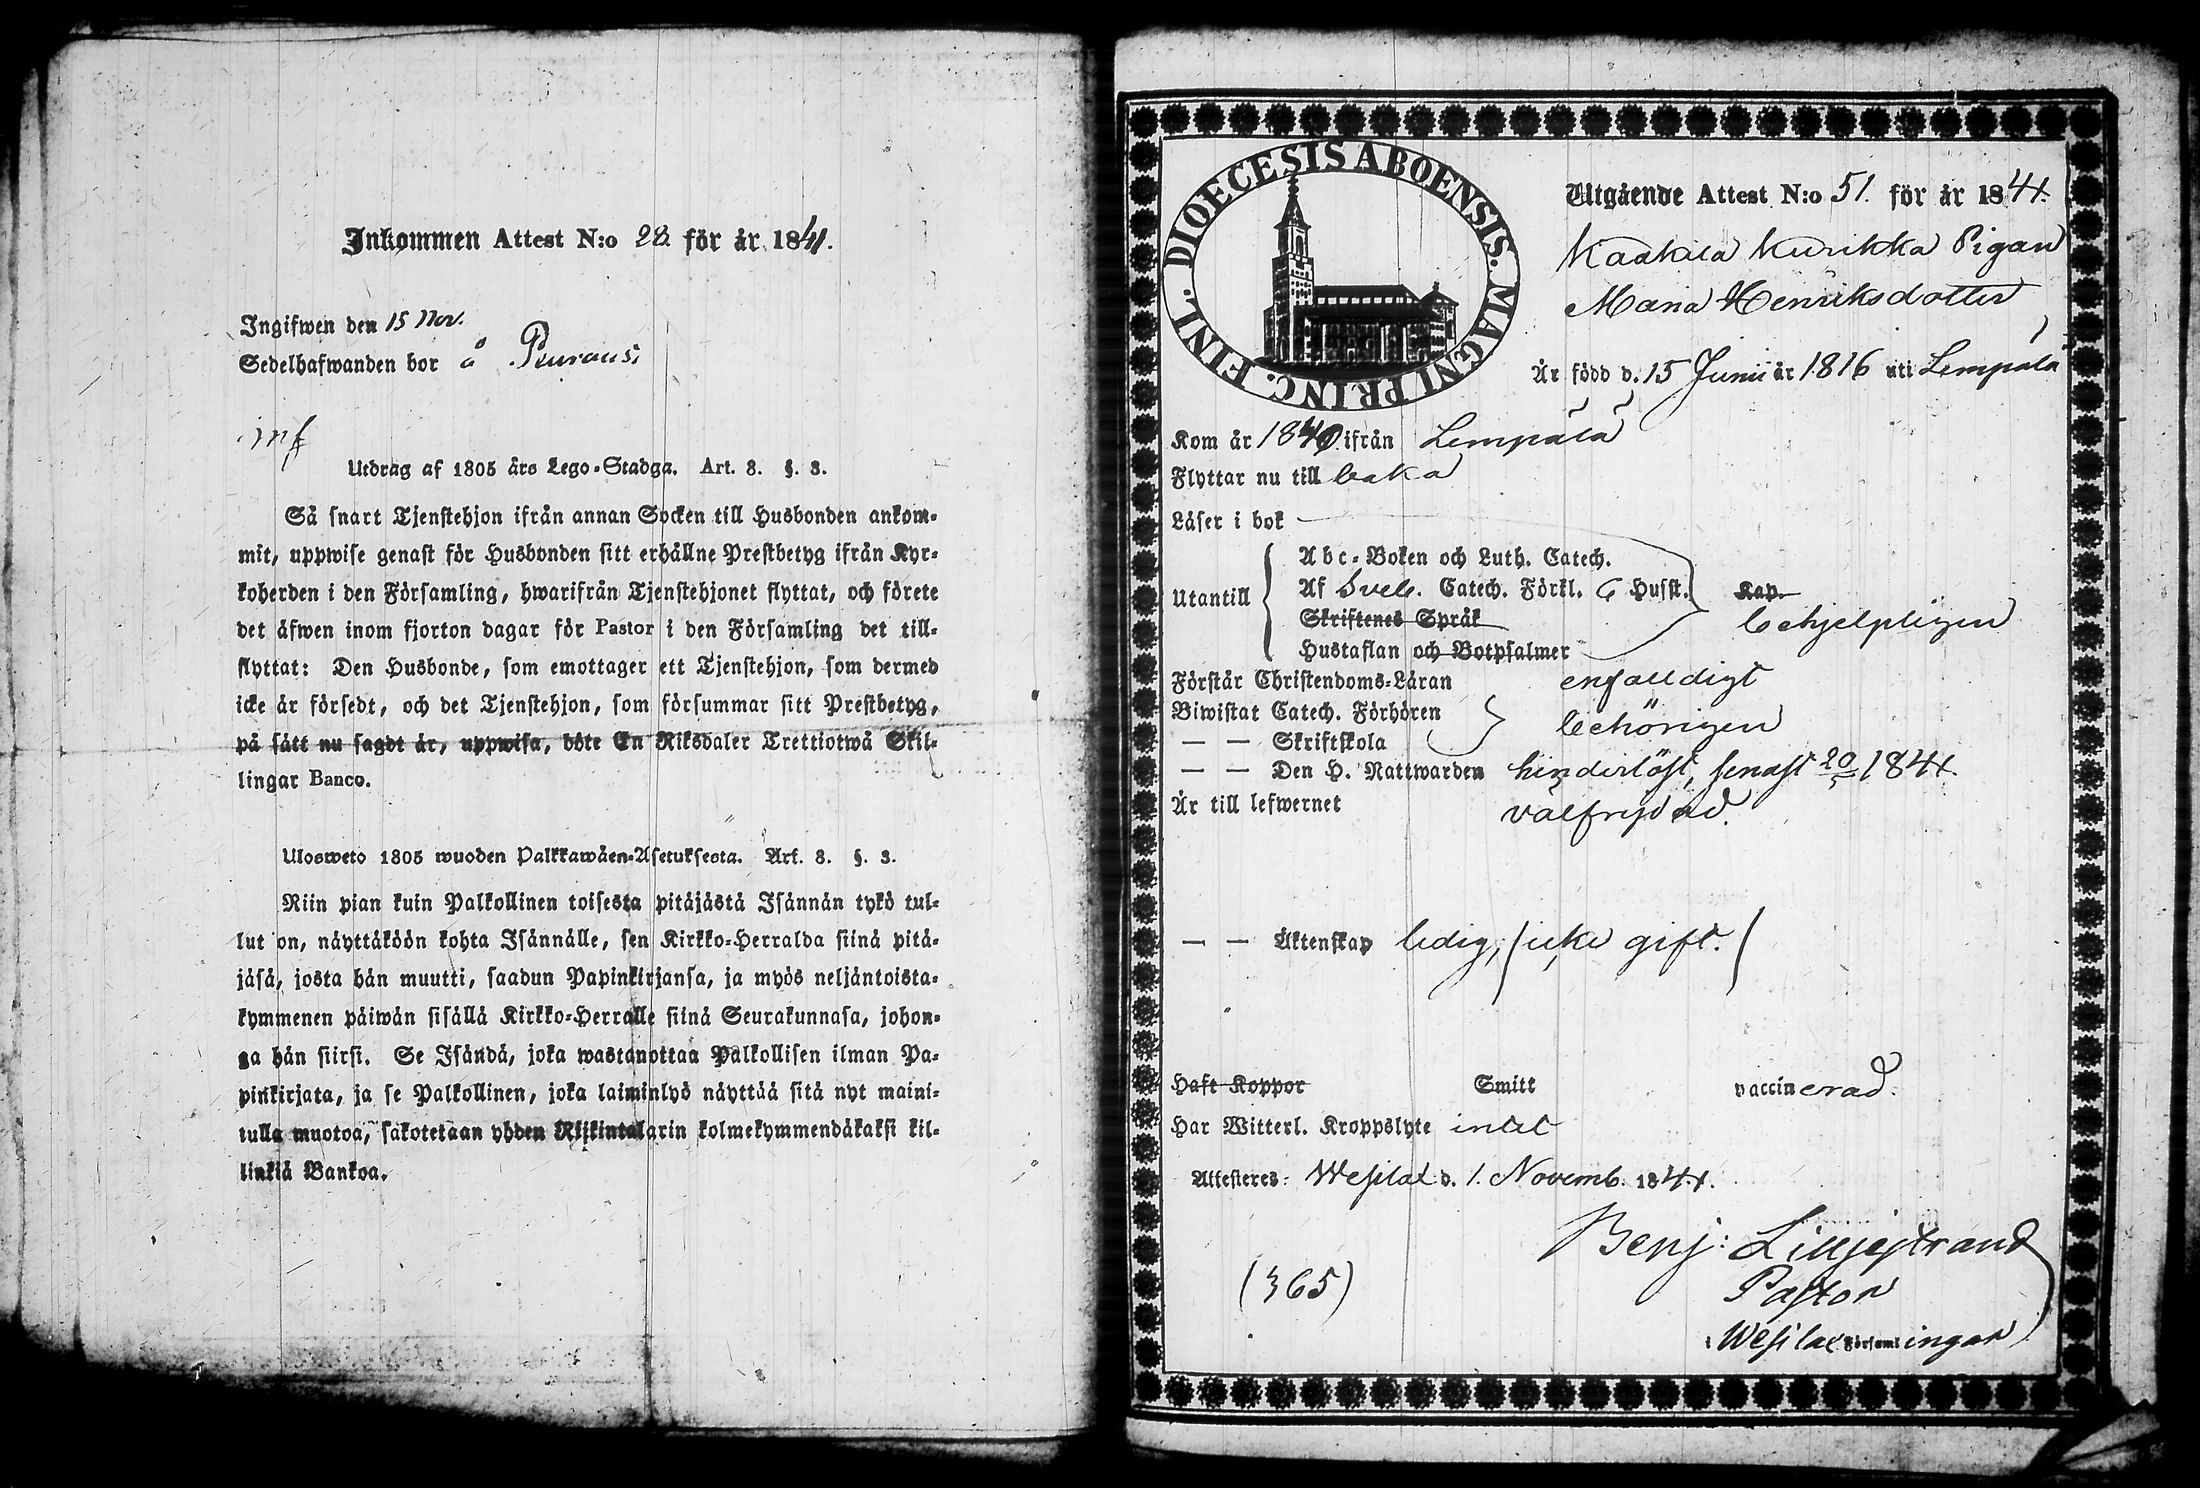 Inkommen Attest N:o 28. för år 1841.
Ingifwen den 15 Nov.
Sedelhafwanden bor å Peurausi
inf
Utdrag af 1805 års Lego-Stadga. Art. 8. §. 3.
Så snart Tjenstehjon ifrån annan Socken till Husbonden ankom-
mit, uppwise genast för Husbonden sitt erhållne Prestbetyg ifrån Kyr-
koherden i den Församling, hwarifrån Tjenstehjonet flyttat, och förete
det äfwen inom fjorton dagar för Pastor i den Församling det till-
flyttat: Den Husbonde, som emottager ett Tjenstehjon, som dermed
icke är försedt, och det Tjenstehjon, som försummar sitt Prestbetyg,
på sätt nu sagdt är, uppwisa, böte En Riksdaler Trettiotwå Skil-
lingar Banco.
Ulosweto 1805 wuoden Palkkawäen-Asetuksesta. Art. 8. §. 3.
Niin pian kuin Palkollinen toisesta pitäjästä Isännän tykö tul-
lut on, näyttäköön kohta Isännälle, sen Kirkko-Herralda siinä pitä-
jäsä, josta hän muutti, saadun Papinkirjansa, ja myös neljäntoista-
kymmenen päiwän sisällä Kirkko-Herralle siinä Seurakunnasa, johon-
ga hän siirsi. Se Isändä, joka wastanottaa Palkollisen ilman Pa-
pinkirjata, ja se Palkollinen, joka laiminlyö näyttää sitä nyt maini-
tulla muotoa, sakotetaan yhden Riikintalarin kolmekymmendäkaksi kil-
linkiä Bankoa.
DIOECESIS ABOENSIS. MAGNI PRINC. FINL.
Utgående Attest N:o 51. för år 1841.
Kaakila Kurikka Pigan
Maria Henriksdotter
Är född d. 15 Junii år 1816 uti Lempälä
Kom år 1840 ifrån Lempälä
Flyttar nu till baka
Läser i bok
Abc-Boken och Luth. Catech.
Utantill Af Sveb. Catech. Förkl. & Husst. Kap.
Skriftenes Språk behjelpligen
Hustaflan och Botpsalmer
Förstår Christendoms-Läran enfalldigt
Biwistat Catech. Förhören behörigen
— — Skriftskola
— — Den H. Nattwarden hinderlöst, senast 20/5 1841.
Är till lefwernet välfrejdad.
— — Äktenskap ledig, (icke gift.)
Haft Koppor Smitt vaccinerad.
Har Witterl. Kroppslyte intet
Attesteres: Wesilax d. 1. Novemb. 1841.
Benj: Lilljestrand
(365) Pastor
i Wesilax Församlingar